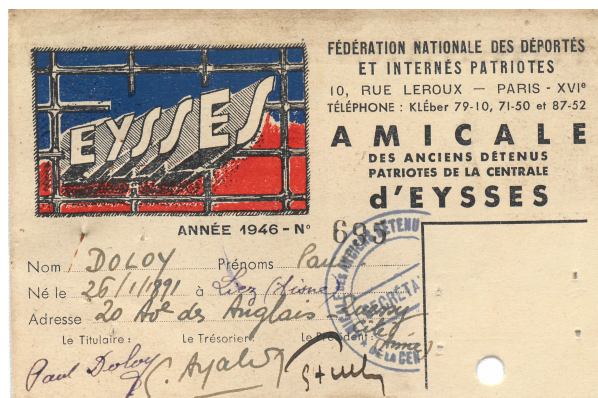 FÉDÉRATION NATIONALE DES DÉPORTÉS
ET INTERNÉS PATRIOTES
10, RUE LEROUX — PARIS - XVIe
TÉLÉPHONE : KLéber 79-10, 71-50 et 87-52
EYSSES
AMICALE
DES ANCIENS DÉTENUS
PATRIOTES DE LA CENTRALE
d'EYSSES
ANNÉE 1946 - N° 695
Nom DOLOY Prénoms Paul
Né le à Liez (Aisne)
Adresse 20 des Anglais
Le Titulaire : Le Trésorier : Le Président :
Paul Doloy